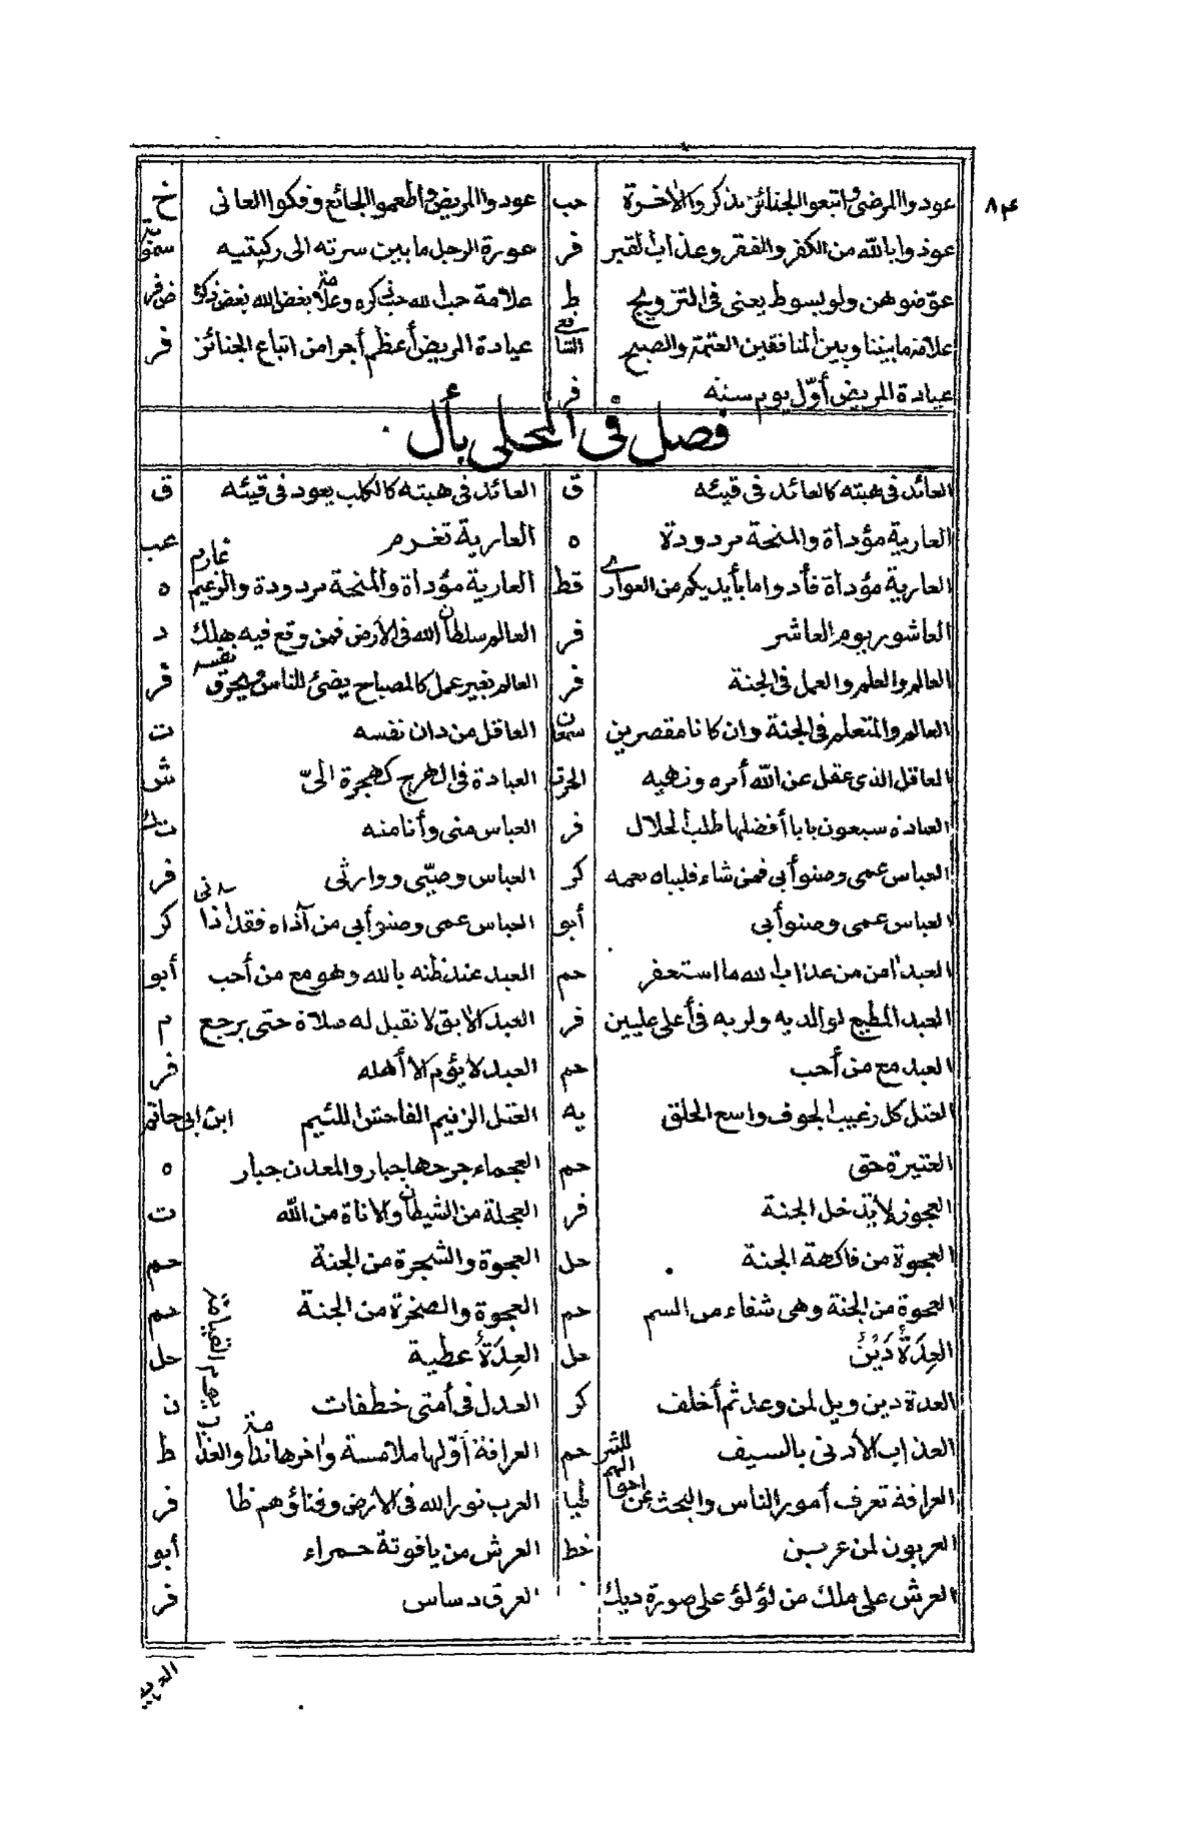 ٨٤
عودوا المرضى واتبعوا الجنائز تذكروا الآخرة حب عودوا المريض وأطعموا الجائع وفكوا العانى خ
عوذوا بالله من الكفر والفقر وعذاب القبر فر عورة الرجل ما بين سرته الى ركبتيه سمويه
عوّضوهن ولو بسوط يعنى فى التزويج ط علامة حب الله حب ذكره وعلامة بغض الله بغض ذكره ض فر
علامة ما بيننا وبين المنافقين العتمة والصبح الشافعى عيادة المريض أعظم أجرا من اتباع الجنائز فر
عيادة المريض أوّل يوم سنه فر
فصل فى المحلى بأل
العائد فى هبته كالعائد فى قيئه ق العائد فى هبته كالكلب يعود فى قيئه ق
العارية مؤداة والمنحة مردودة ه العارية تغرم عب
العارية مؤداة فأدوا ما بأيديكم من العوارى قط العارية مؤداة والمنحة مردودة والزعيم غارم ه
العاشور يوم العاشر فر العالم سلطان الله فى الأرض فمن وقع فيه هلك د
العالم والعلم والعمل فى الجنة فر العالم بغير عمل كالمصباح يضئ للناس ويحرق نفسه فر
العالم والمتعلم فى الجنة وان كانا مقصرين سمعان العاقل من دان نفسه ت
العاقل الذى عقل عن الله أمره ونهيه الحرث العبادة فى الهرج كهجرة الىّ ش
العبادة سبعون بابا أفضلها طلب الحلال فر العباس منى وأنا منه ت ك
العباس عمى وصنو أبى فمن شاء فليباه بعمه كر العباس وصيّى ووارثى فر
العباس عمى وصنو أبى أبو العباس عمى وصنو أبى من آذاه فقد آذانى كر
العبد آمن من عذاب الله ما استغفر حم العبد عند ظنه بالله وهو مع من أحب أبو
العبد المطيع لوالديه ولربه فى أعلى عليين فر العبد الآبق لا تقبل له صلاة حتى يرجع م
العبد مع من أحب حم العبد لا يؤم الا أهله فر
العتل كل رغيب الجوف واسع الحلق يه العتل الزنيم الفاحش اللئيم ابن ابى حاتم
العتيرة حق حم العجماء جرحها جبار والمعدن جبار ه
العجوز لا تدخل الجنة فر العجلة من الشيطان والاناة من الله ت
العجوة من فاكهة الجنة حل العجوة والشجرة من الجنة حم
العجوة من الجنة وهى شفاء من السم حم العجوة والصخرة من الجنة حم
العِدَةُ دَيْنٌ حل العِدَةُ عطية حل
العدة دين ويل لمن وعد ثم أخلف كر العدل فى أمتى خطفات ن
العذاب الأدنى بالسيف حم العرافة أوّلها ملامسة وآخرها ندامة والعذاب يوم القيامة ط
العرافة تعرف أمور الناس والبحث عن طيا العرب نور الله فى الارض وفناؤهم ظلمة فر
العربون لمن عربن خط العرش من ياقوتة حمراء أبو
العرش على ملك من لؤلؤ على صورة ديك العرق دساس فر
العربية